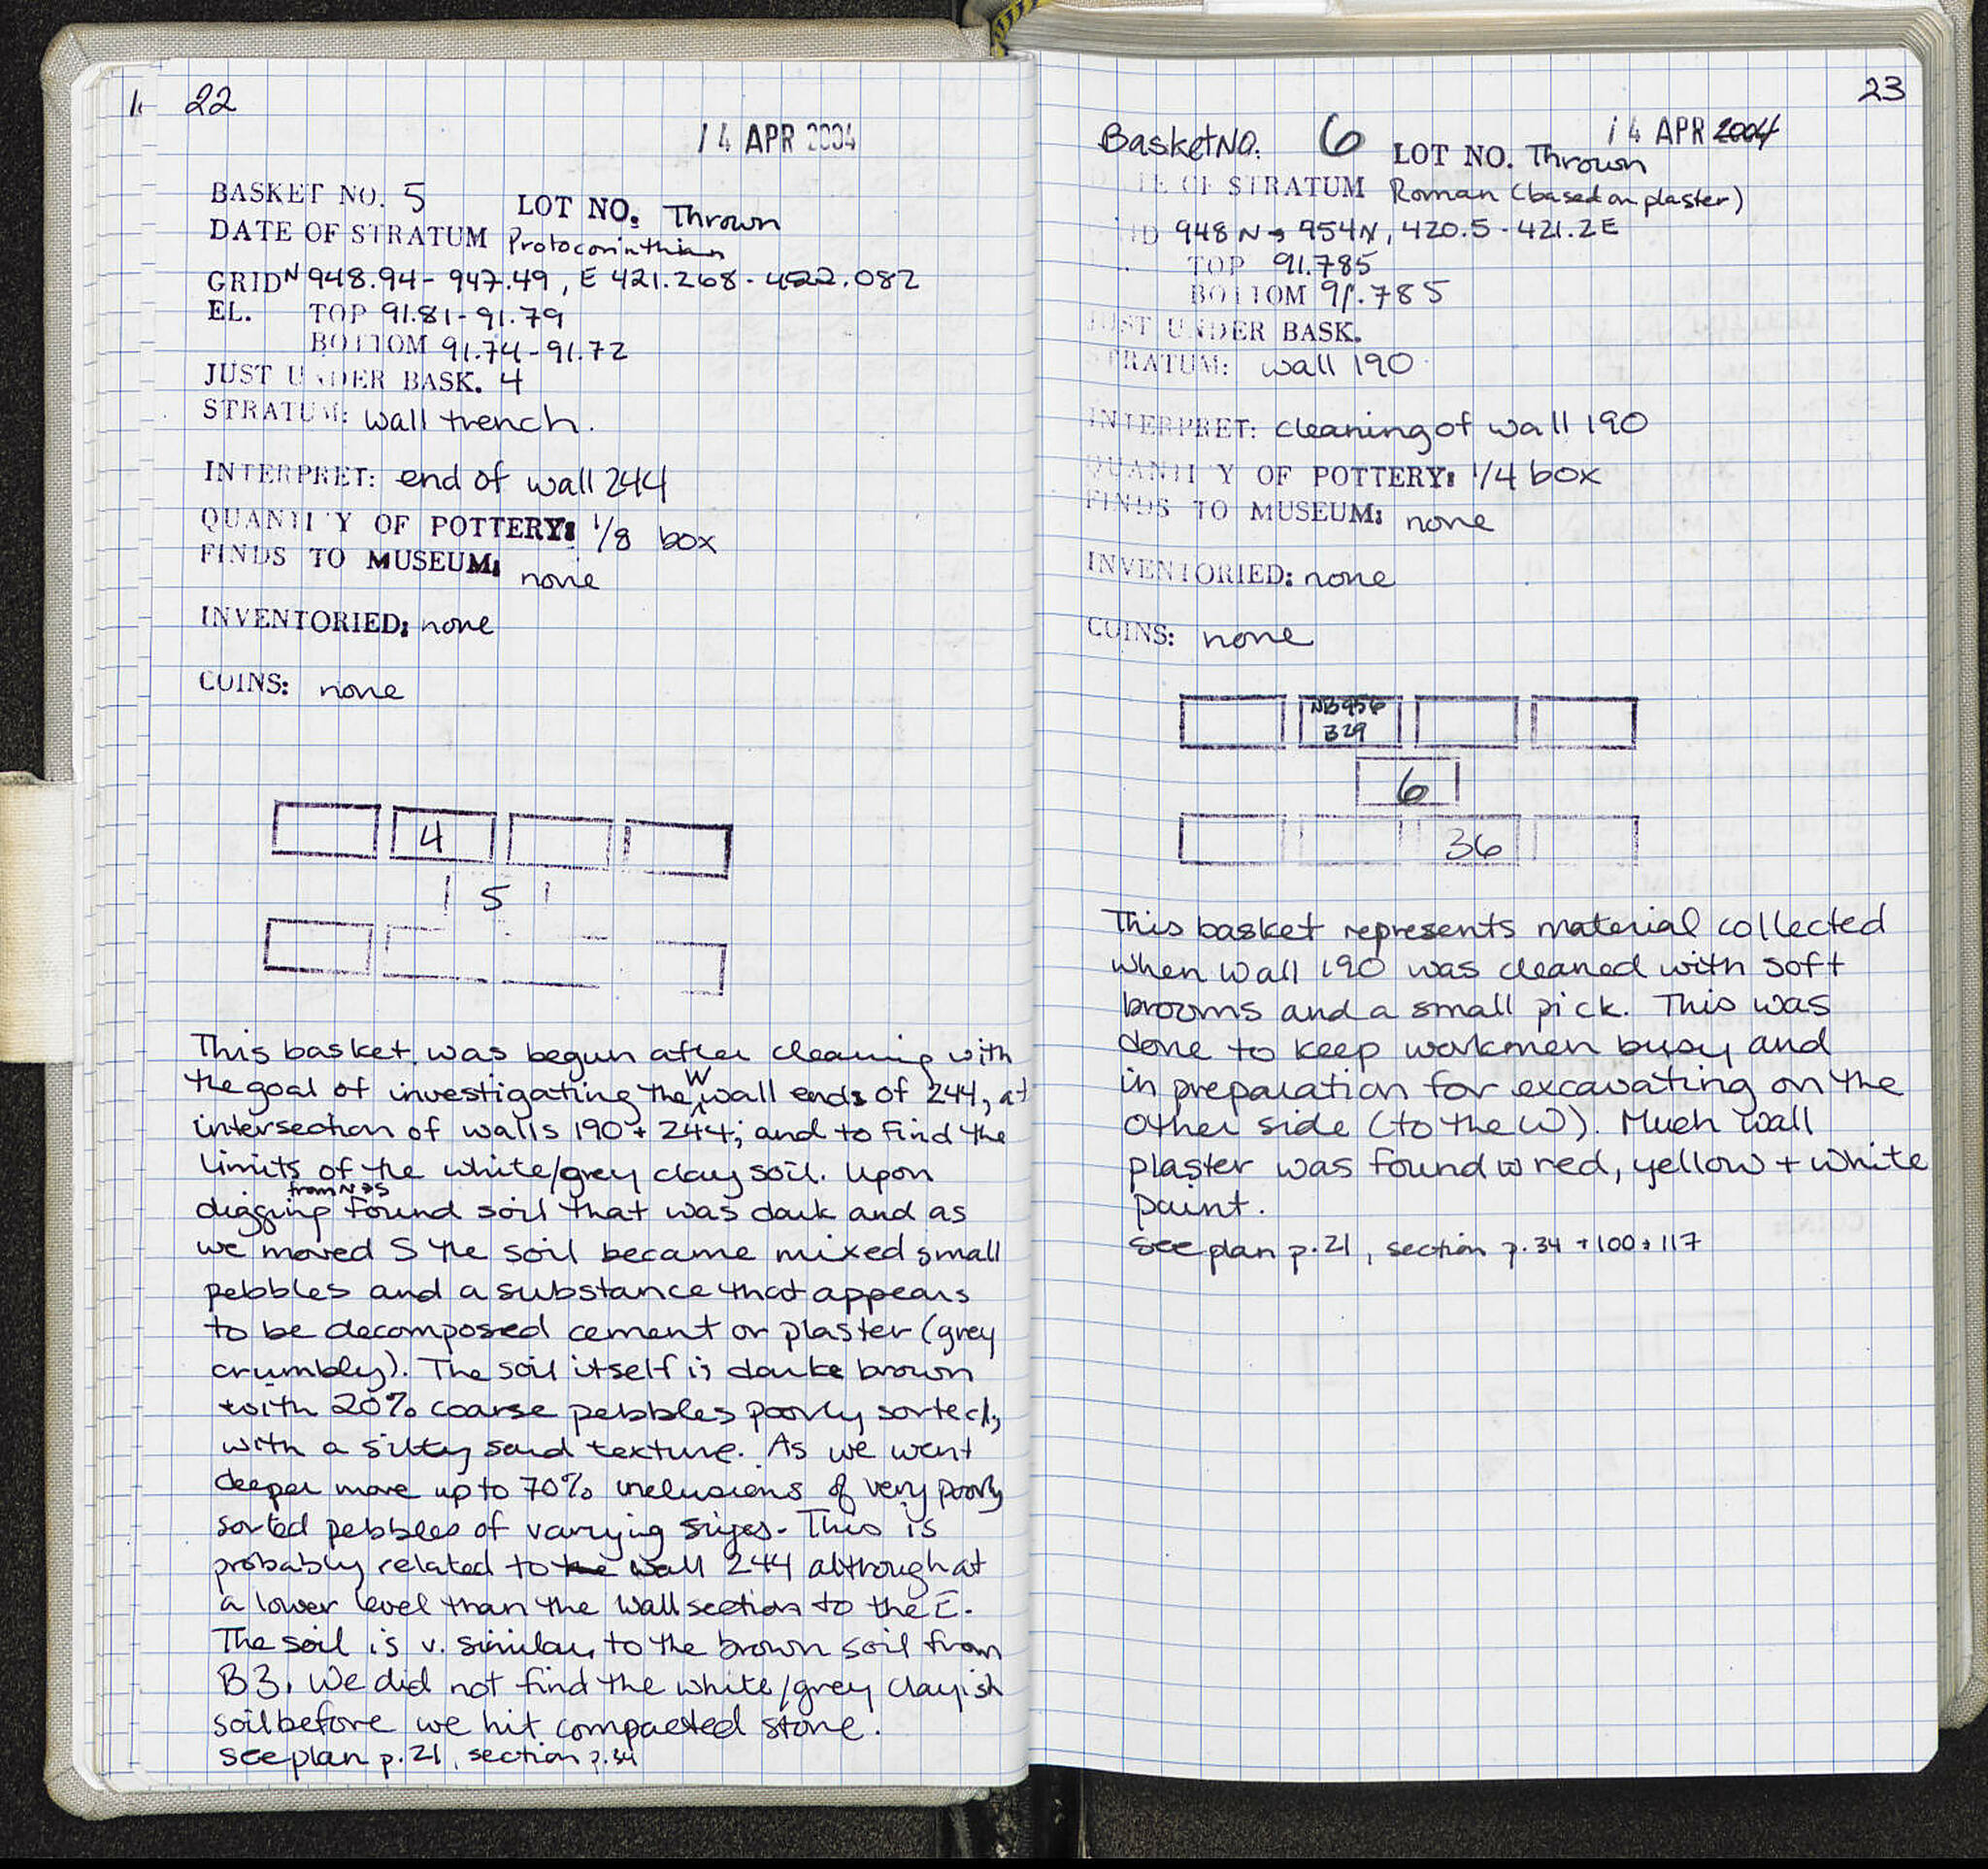 22
14 APR 2004
BASKET NO. 5 LOT NO. Thrown
DATE OF STRATUM Protocorinthian
GRID N 948.94 - 947.49, E 421.268 - 422.082
EL. TOP 91.81 - 91.79
BOTTOM 91.74 - 91.72
JUST UNDER BASK. 4
STRATUM: wall trench.
INTERPRET: end of wall 244
QUANTITY OF POTTERY: 1/8 box
FINDS TO MUSEUM: none
INVENTORIED: none
COINS: none
4
5
This basket was begun after cleaning with
the goal of investigating the W wall ends of 244, at
intersection of walls 190 + 244; and to find the
limits of the white/grey clay soil. Upon
digging from N → S found soil that was dark and as
we moved S the soil became mixed small
pebbles and a substance that appears
to be decomposed cement or plaster (grey
crumbly). The soil itself is darke brown
with 20% coarse pebbles poorly sorted,
with a silty sand texture. As we went
deeper more up to 70% inclusions of very poorly
sorted pebbles of varying sizes. This is
probably related to the wall 244 although at
a lower level than the wall section to the E.
The soil is v. similar to the brown soil from
B3. We did not find the white/grey clayish
soil before we hit compacted stone.
see plan p.21, section p.34
23
14 APR 2004
Basket NO. 6 LOT NO. Thrown
DATE OF STRATUM Roman (based on plaster)
948 N → 954 N, 420.5 - 421.2 E
TOP 91.785
BOTTOM 91.785
JUST UNDER BASK.
STRATUM: wall 190
INTERPRET: cleaning of wall 190
QUANTITY OF POTTERY: 1/4 box
FINDS TO MUSEUM: none
INVENTORIED: none
COINS: none
NB956
B29
6
36
This basket represents material collected
when wall 190 was cleaned with soft
brooms and a small pick. This was
done to keep workmen busy and
in preparation for excavating on the
other side (to the W). Much wall
plaster was found w red, yellow + white
paint.
see plan p.21, section p.34 + 100 + 117